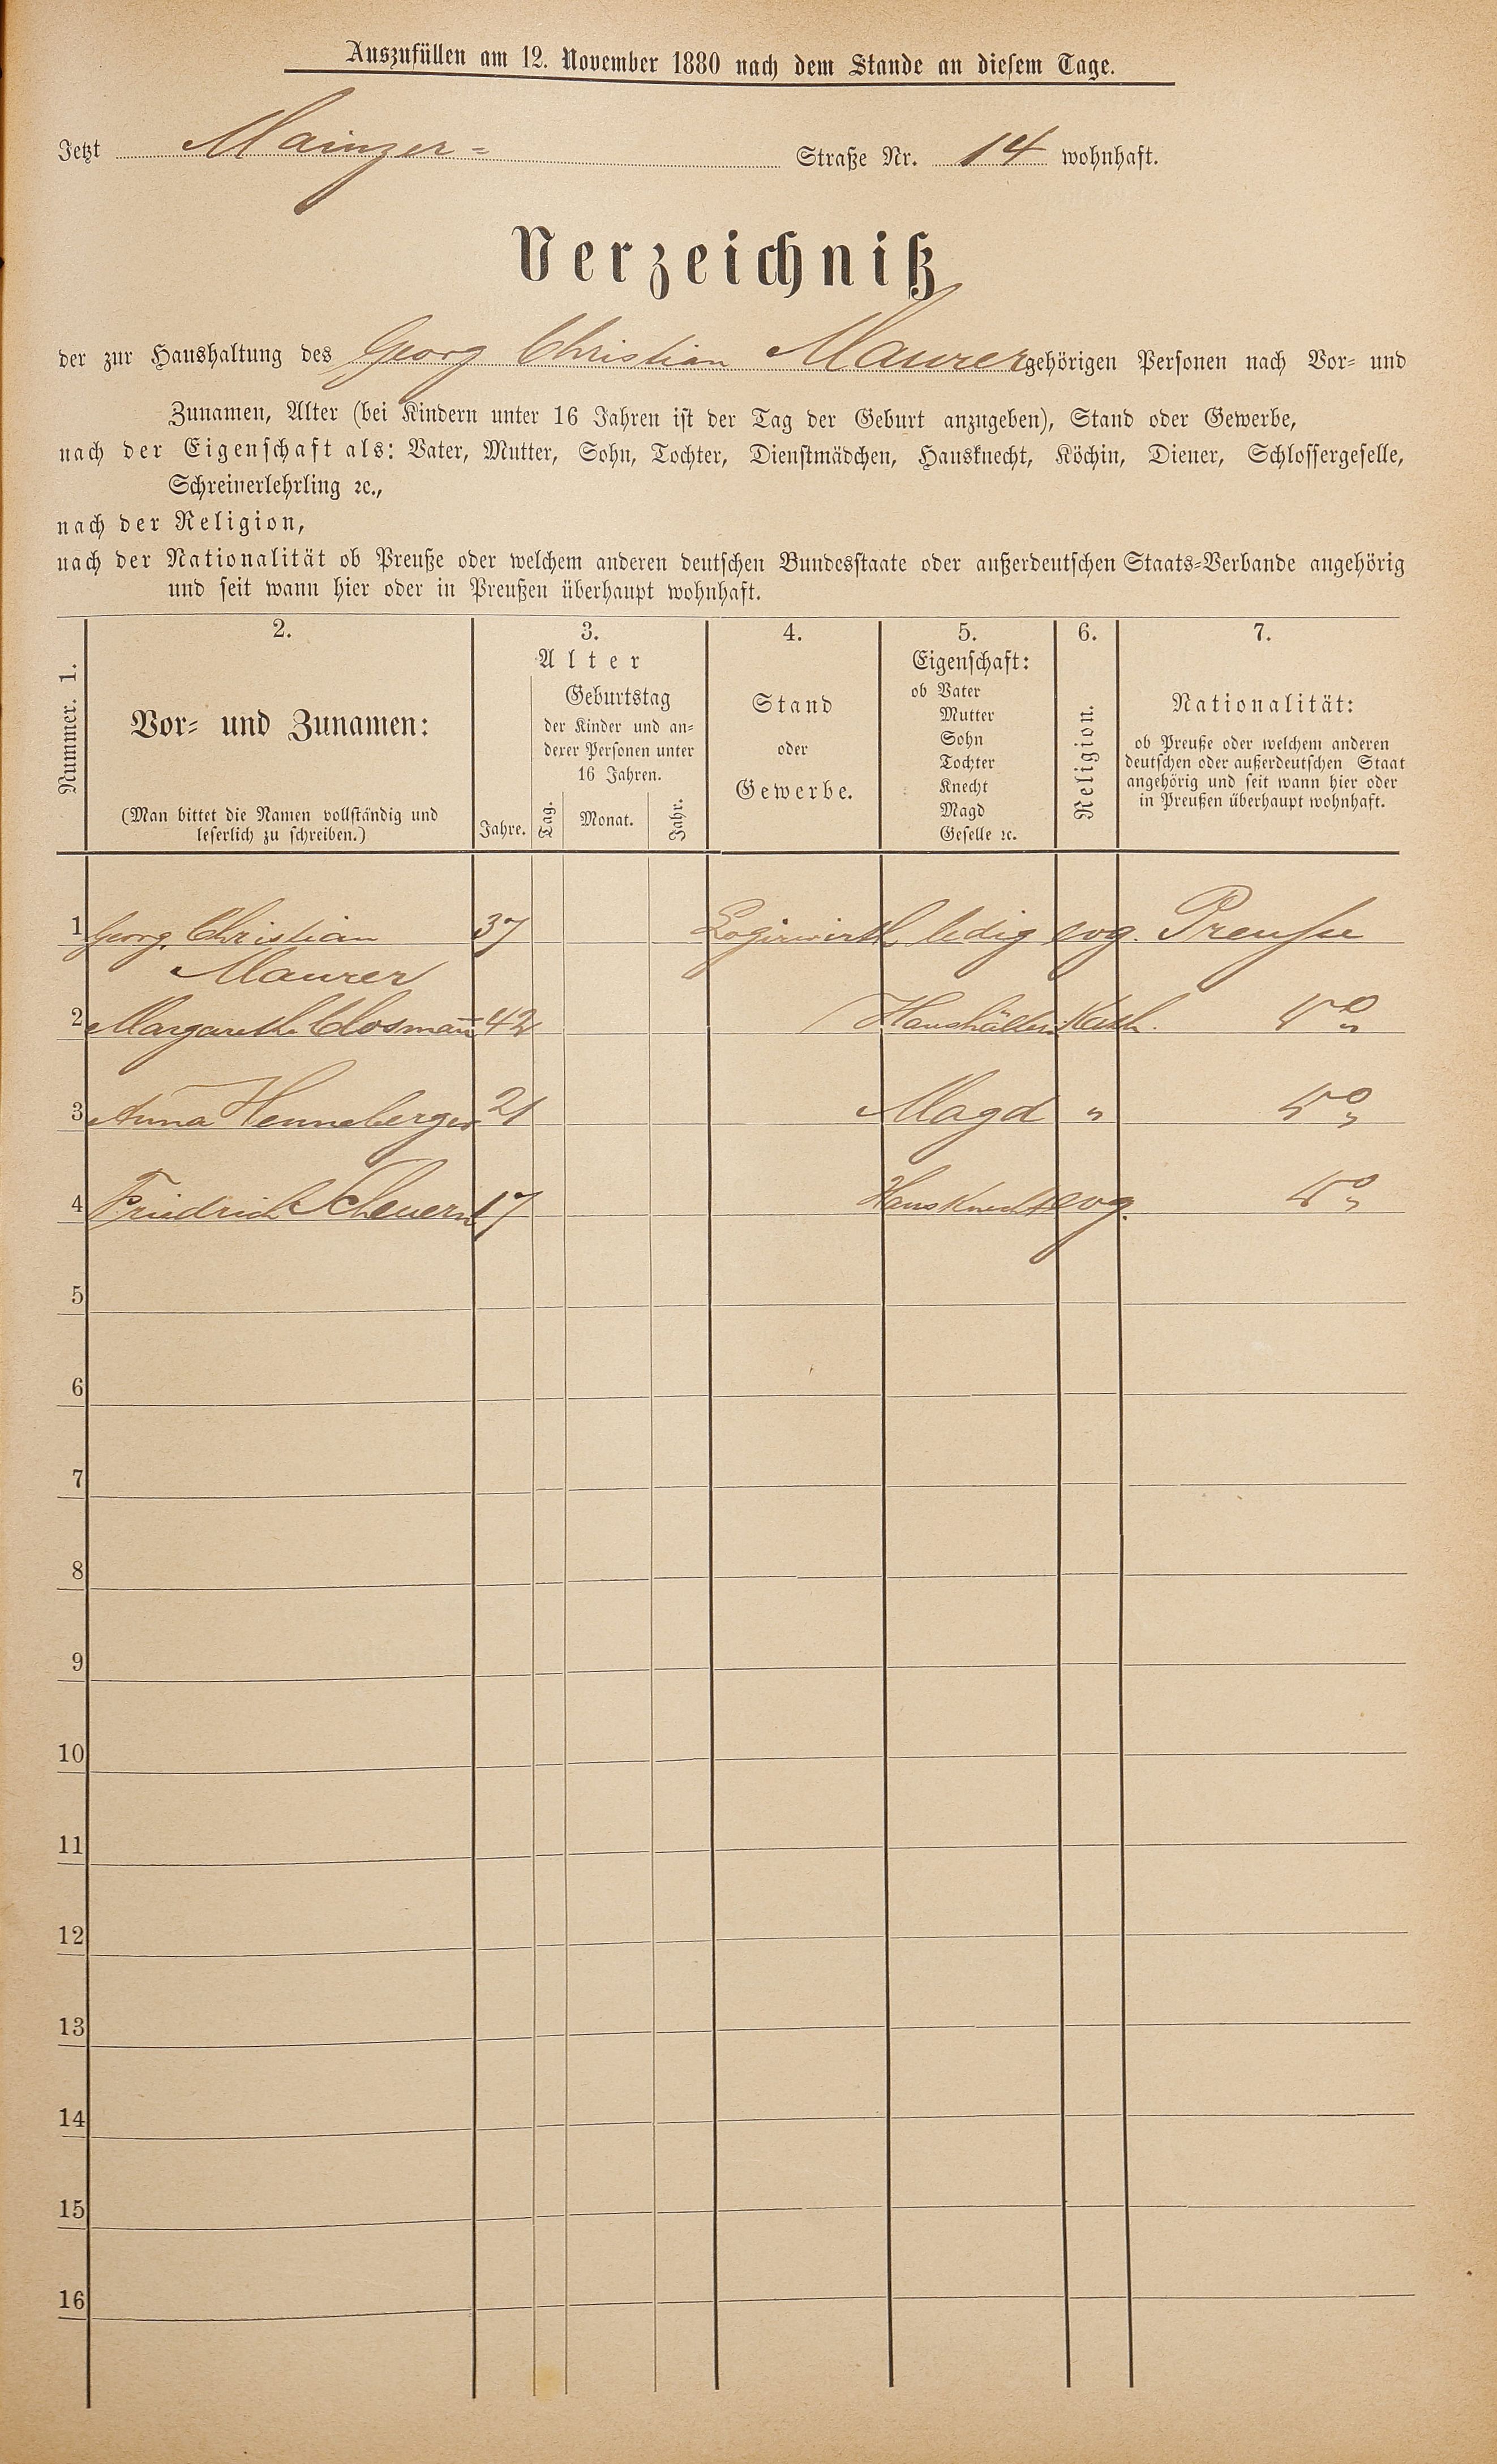 Auszufüllen am 12. November 1880 nach dem Stande an diesem Tage.
Jetzt Mainzer- Straße Nr. 14 wohnhaft.
Verzeichniß
der zur Haushaltung des Georg Christian Maurer gehörigen Personen nach Vor- und
Zunamen, Alter (bei Kindern unter 16 Jahren ist der Tag der Geburt anzugeben), Stand oder Gewerbe,
nach der Eigenschaft als: Vater, Mutter, Sohn, Tochter, Dienstmädchen, Hausknecht, Köchin, Diener, Schlossergeselle,
Schreinerlehrling ꝛc.,
nach der Religion,
nach der Nationalität ob Preuße oder welchem anderen deutschen Bundesstaate oder außerdeutschen Staats-Verbande angehörig
und seit wann hier oder in Preußen überhaupt wohnhaft.
Nummer. 1.
2.
Vor- und Zunamen:
(Man bittet die Namen vollständig und
leserlich zu schreiben.)
3.
Alter
Jahre.
Geburtstag
der Kinder und an-
derer Personen unter
16 Jahren.
Tag.
Monat.
Jahr.
4.
Stand
oder
Gewerbe.
5.
Eigenschaft:
ob Vater
Mutter
Sohn
Tochter
Knecht
Magd
Geselle ꝛc.
6.
Religion.
7.
Nationalität:
ob Preuße oder welchem anderen
deutschen oder außerdeutschen Staat
angehörig und seit wann hier oder
in Preußen überhaupt wohnhaft.
1 Georg Christian 37 Logirwirth ledig evg. Preuße
Maurer
2 Margareth Closmann 42 Haushälterin Kath.
3 Anna Henneberger 21 Magd "
4 Friedrich Scheuern 17 Hausknecht evg.
5
6
7
8
9
10
11
12
13
14
15
16